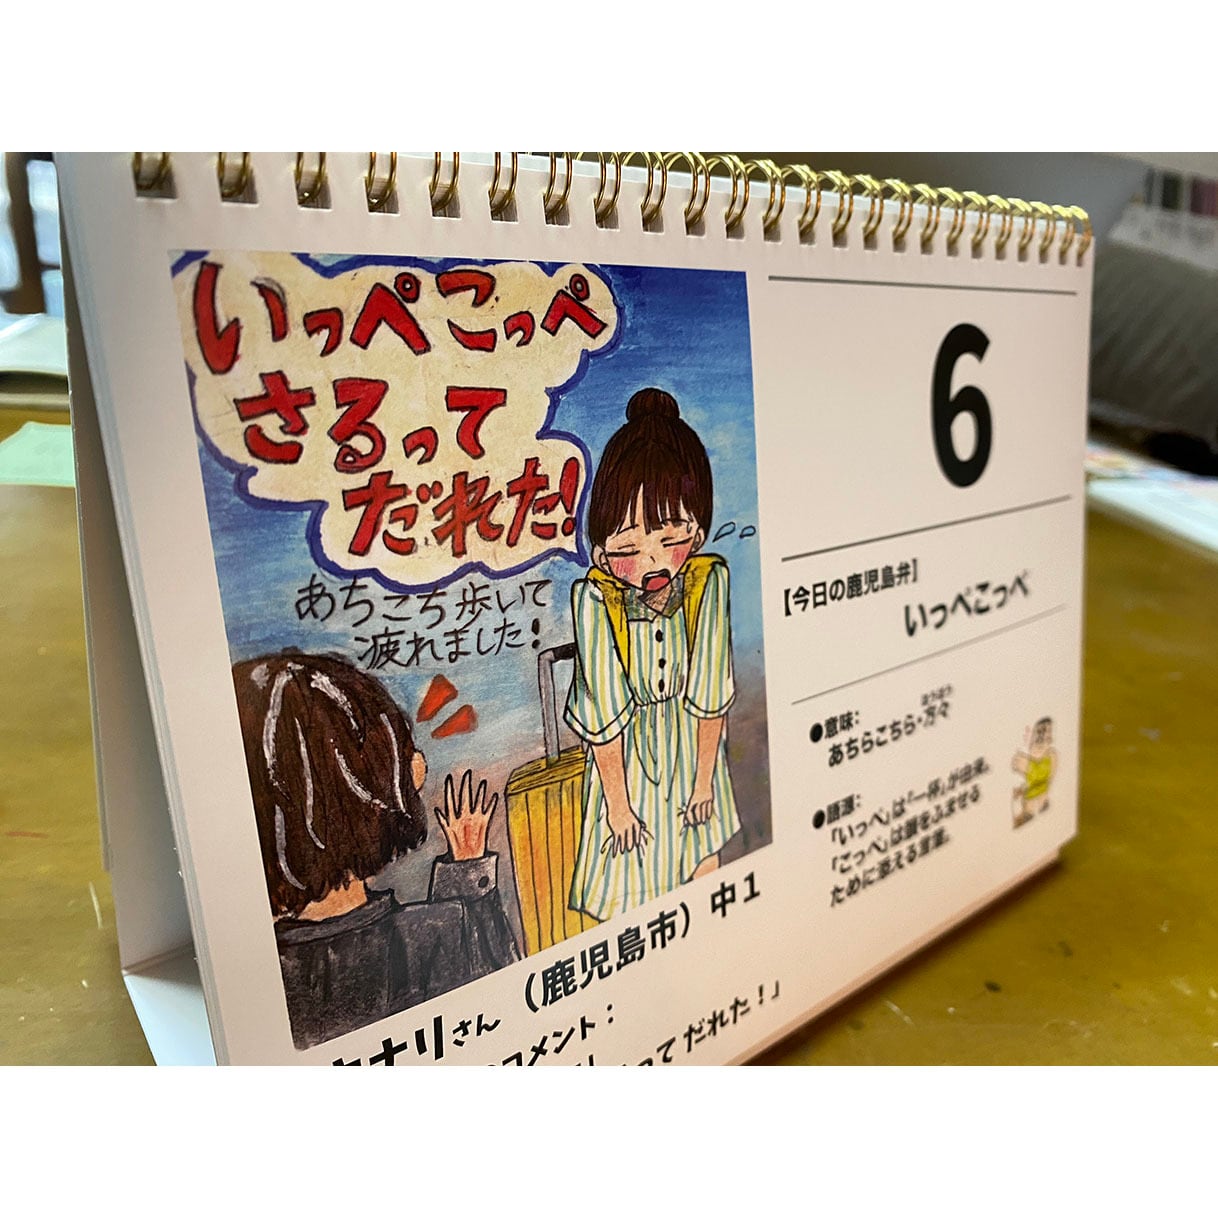 いっぺこっぺ
さるって
だれた!
あちこち歩いて
疲れました!
ナリさん（鹿児島市）中1
コメント：
って だれた！」
6
【今日の鹿児島弁】
いっぺこっぺ
●意味：
あちらこちら・万々
●語源：
「いっぺ」は「一杯」が由来。
「こっぺ」は韻をふませる
ために添える言葉。